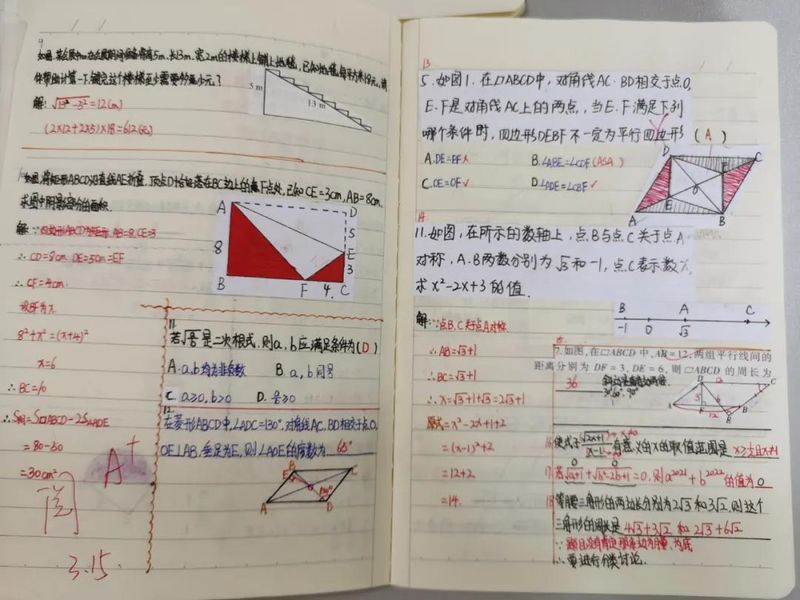 9
如图,某会展中心在会展期间准备将高5m,长13m,宽2m的楼梯上铺上地毯,已知地毯每平方米18元,请
你帮助计算一下,铺完这个楼梯至少需要多少元?
解:√13²-5² = 12(m)
(2×12+2×5)×18=612(元)
5m
13 m
如图,将矩形ABCD沿直线AE折叠,顶点D恰好落在BC边上的F点处,已知CE=3cm,AB=8cm,
求图中阴影部分的面积.
解:∵四边形ABCD为矩形,AB=8,CE=3
∴CD=8cm DE=5cm=EF
∴CF=4cm
设BF为x
8²+x²=(x+4)²
x=6
∴BC=10
∴S阴=S□ABCD-2S△ADE
=80-50
=30cm²
A D 5 E 3 8 B F 4 C
A+
阅
3.15
11
若√a/b是二次根式,则a,b应满足条件为(D)
A.a,b均为非负数 B a,b同号
C a≥0,b>0 D. a/b≥0
12
在菱形ABCD中,∠ADC=130°,对角线AC、BD相交于点O,
OE⊥AB,垂足为E,则∠AOE的度数为 65°
13
5.如图1.在□ABCD中,对角线AC·BD相交于点O,
E.F是对角线AC上的两点,当E.F满足下列
哪个条件时,四边形DEBF不一定为平行四边形 (A)
A.DE=BF× B.∠ABE=∠CDF(ASA)
C.OE=OF✓ D.∠ADE=∠CBF✓
D C F O E A B
14
11.如图,在所示的数轴上,点B与点C关于点A
对称,A.B两数分别为√3和-1,点C表示数x,
求x²-2x+3的值.
B A C
-1 0 √3
解:∵点B.C关于点A对称
∴AB=√3+1
∴BC=√3+1
∴x=√3+1+√3=2√3+1
原式=x²-2x+1+2
=(x-1)²+2
=12+2
=14.
7.如图,在□ABCD中,AB=12,两组平行线间的
距离分别为DF=3,DE=6,则□ABCD的周长为
36
16 使式子√2x+1/x-1有意义的x的取值范围是 x≥-½且x≠1
17 若√a+1+√b²-2b+1=0,则a²⁰²¹+b²⁰²²的值为0
18 等腰三角形的两边长分别为2√3和3√2,则这个
三角形的周长是 4√3+3√2 和 2√3+6√2
∴要进行分类讨论.